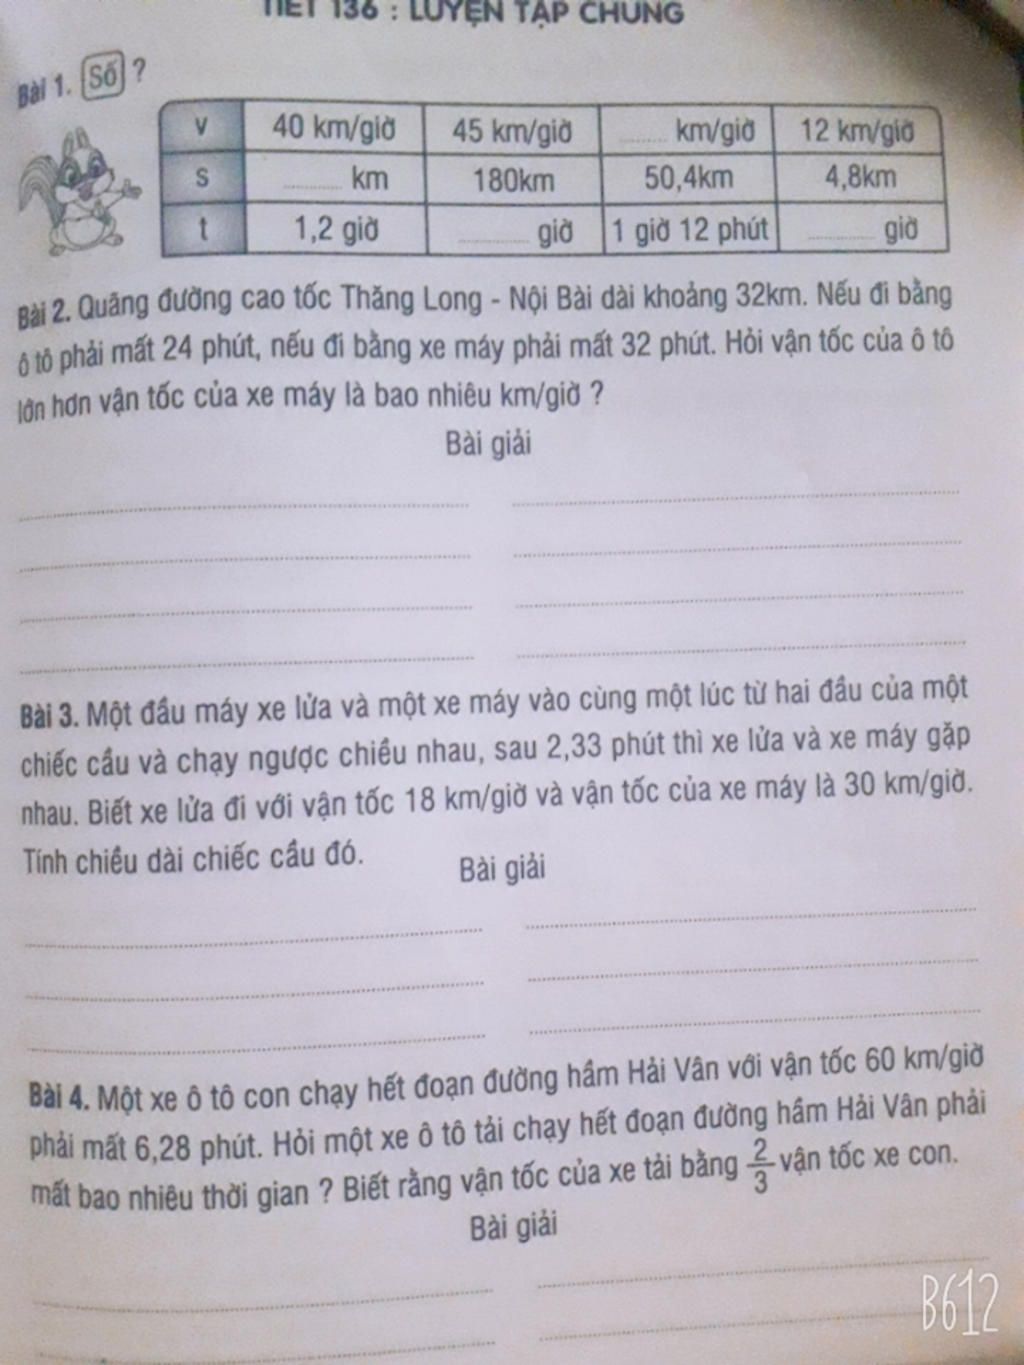 TIẾT 136 : LUYỆN TẬP CHUNG
Bài 1. Số ?
v 40 km/giờ 45 km/giờ ........ km/giờ 12 km/giờ
s ........ km 180km 50,4km 4,8km
t 1,2 giờ ........ giờ 1 giờ 12 phút ........ giờ
Bài 2. Quãng đường cao tốc Thăng Long - Nội Bài dài khoảng 32km. Nếu đi bằng
ô tô phải mất 24 phút, nếu đi bằng xe máy phải mất 32 phút. Hỏi vận tốc của ô tô
lớn hơn vận tốc của xe máy là bao nhiêu km/giờ ?
Bài giải
Bài 3. Một đầu máy xe lửa và một xe máy vào cùng một lúc từ hai đầu của một
chiếc cầu và chạy ngược chiều nhau, sau 2,33 phút thì xe lửa và xe máy gặp
nhau. Biết xe lửa đi với vận tốc 18 km/giờ và vận tốc của xe máy là 30 km/giờ.
Tính chiều dài chiếc cầu đó.
Bài giải
Bài 4. Một xe ô tô con chạy hết đoạn đường hầm Hải Vân với vận tốc 60 km/giờ
phải mất 6,28 phút. Hỏi một xe ô tô tải chạy hết đoạn đường hầm Hải Vân phải
mất bao nhiêu thời gian ? Biết rằng vận tốc của xe tải bằng 2/3 vận tốc xe con.
Bài giải
B612